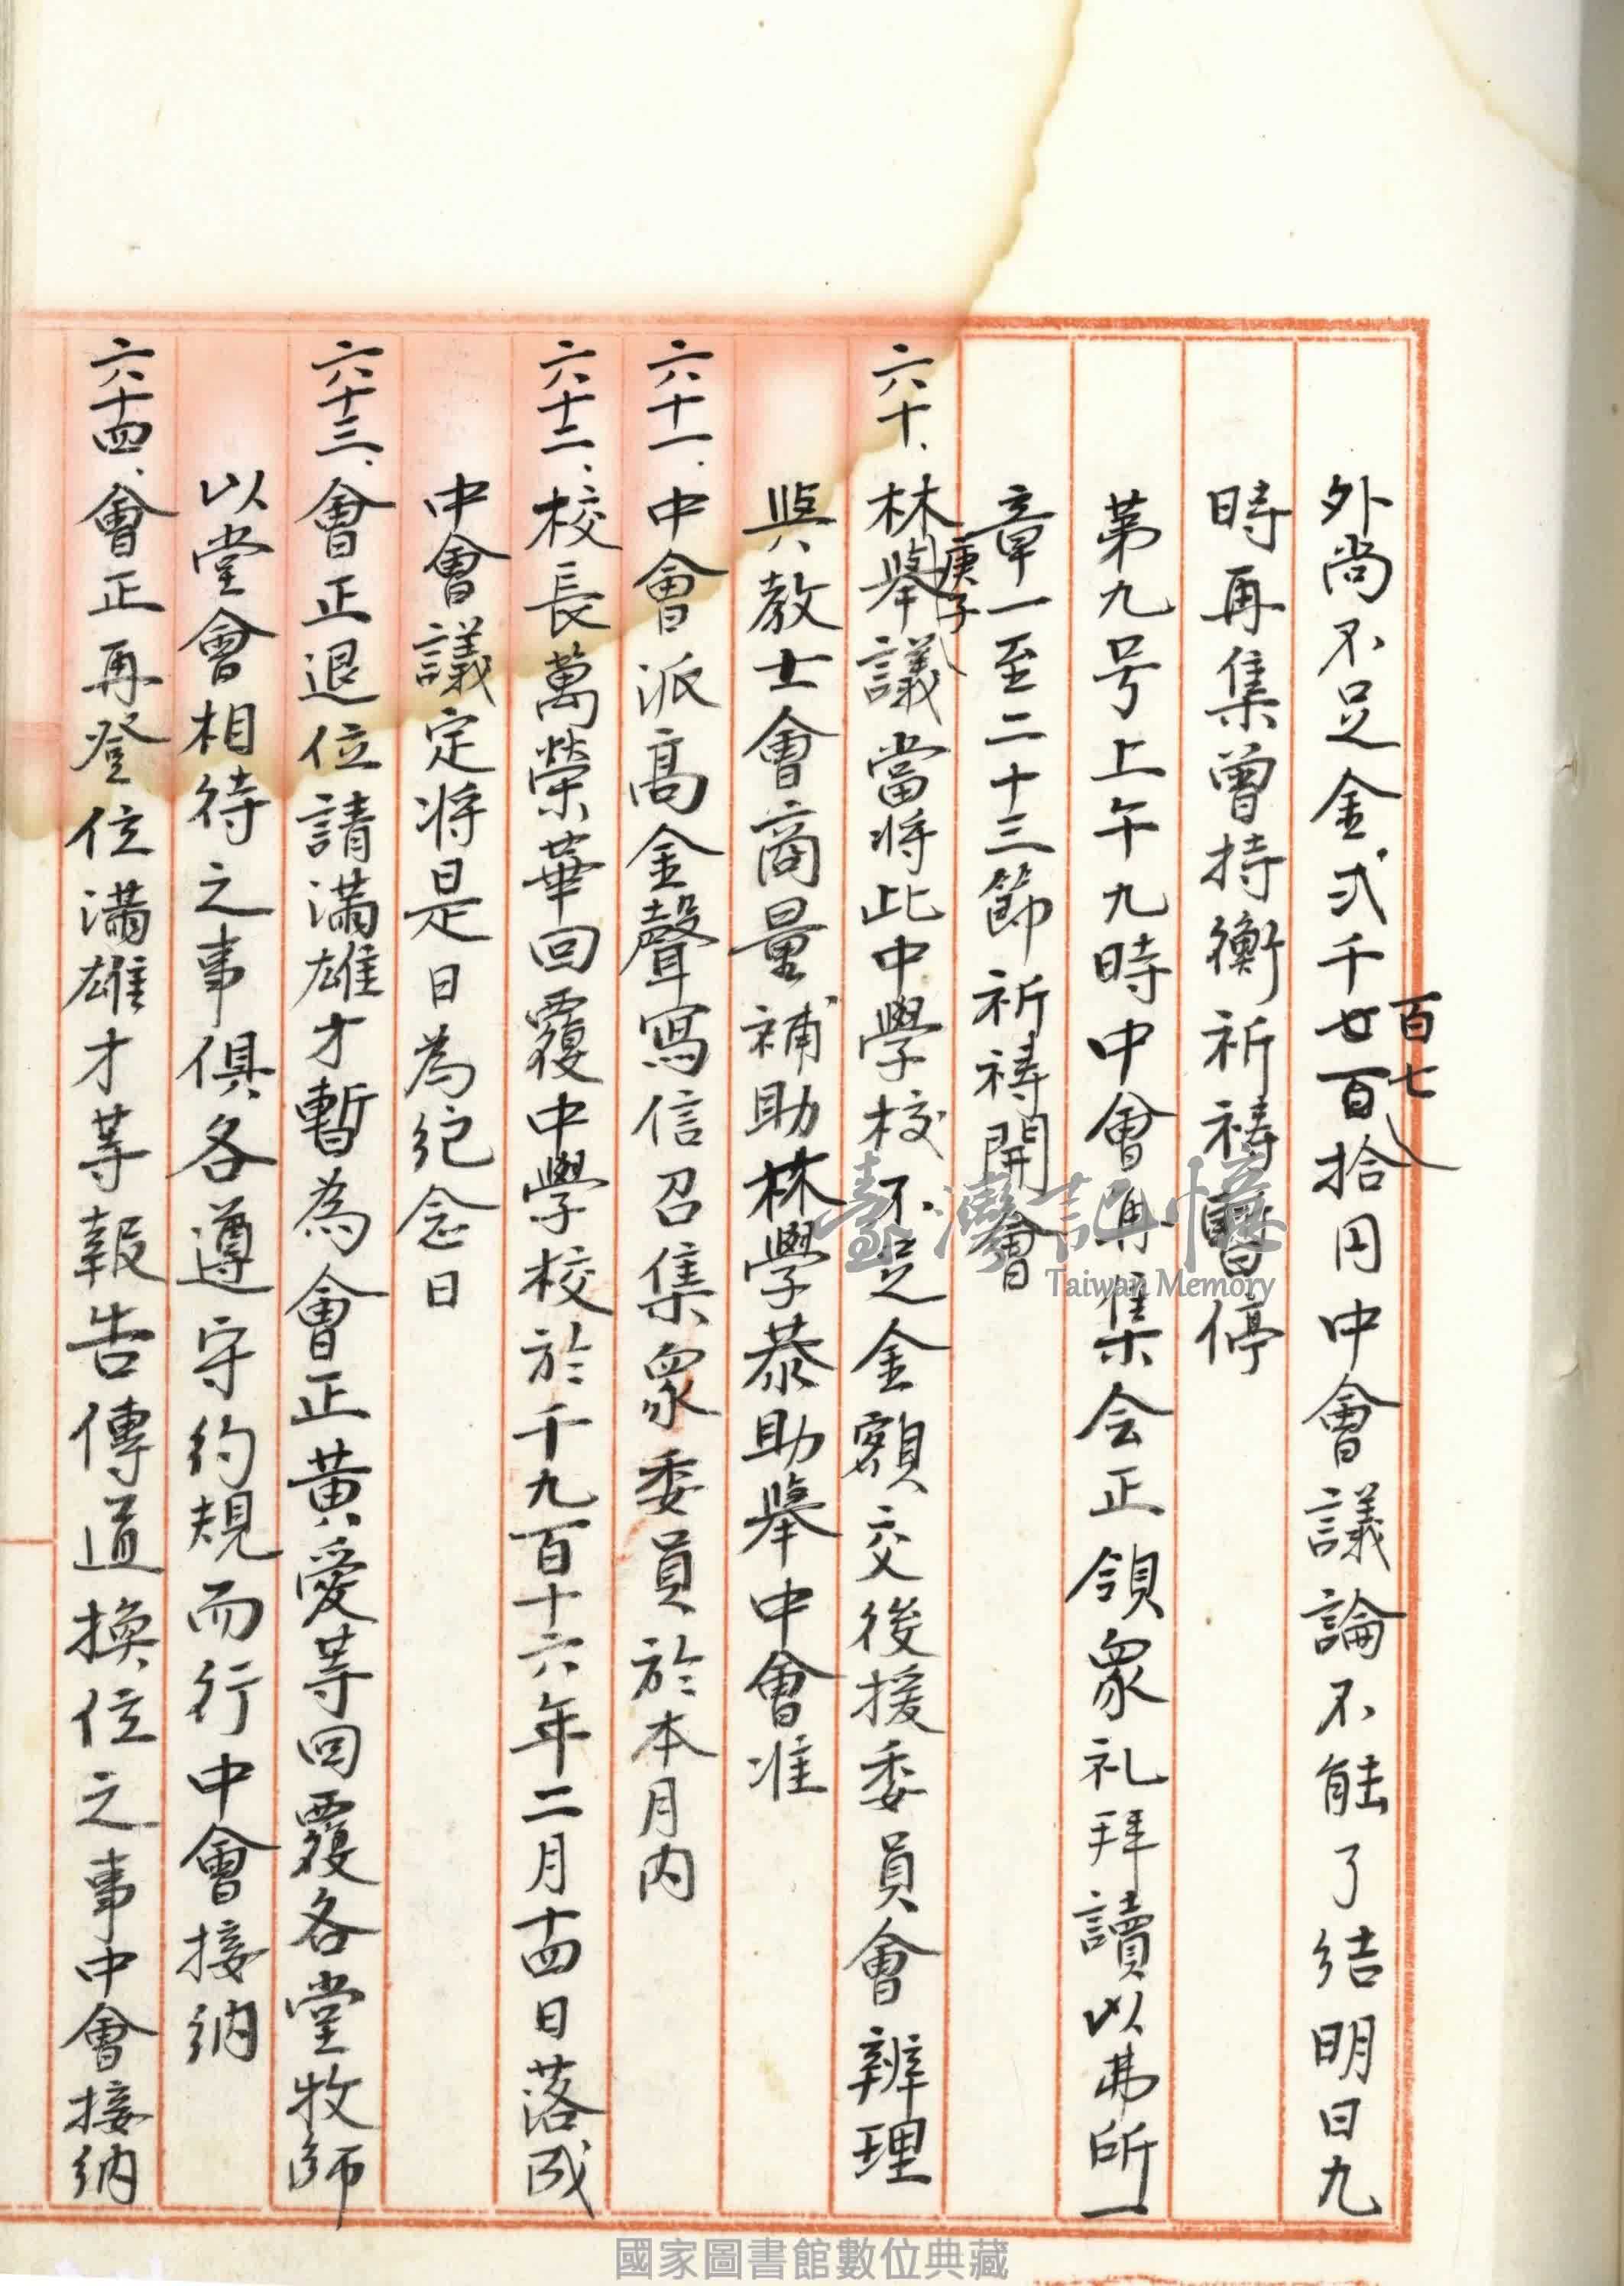 外尚不足金弍千七百拾円中會議論不能了結明日九
百七
時再集曾持衡祈禱暫停
第九号上午九時中會再集会正領眾礼拜讀以弗所一
章一至二十三節祈禱開會
庚子
六十、林舉議當將此中學校不足金額交後援委員會辦理
與教士會商量補助林學恭助舉中會准
六十一、中會派高金聲寫信召集眾委員於本月內
六十二、校長萬榮華回覆中學校於千九百十六年二月十四日落成
中會議定將是日為紀念日
六十三、會正退位請滿雄才暫為會正黃愛等回覆各堂牧師
以堂會相待之事俱各遵守約規而行中會接納
六十四、會正再登位滿雄才等報告傳道換位之事中會接納
臺灣記憶
Taiwan Memory
國家圖書館數位典藏